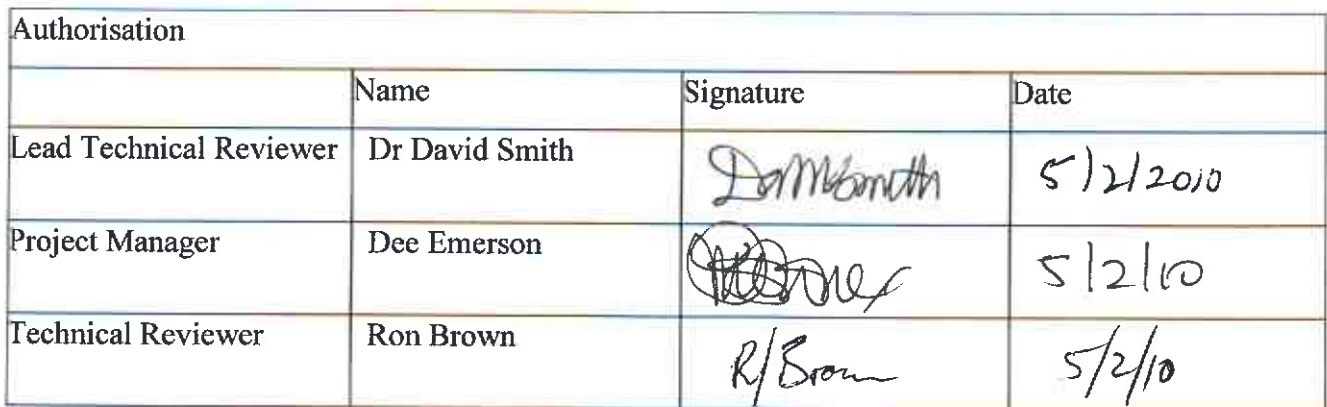 Authorisation
Name Signature Date
Lead Technical Reviewer Dr David Smith 5/2/2010
Project Manager Dee Emerson 5/2/10
Technical Reviewer Ron Brown R/Brown 5/2/10